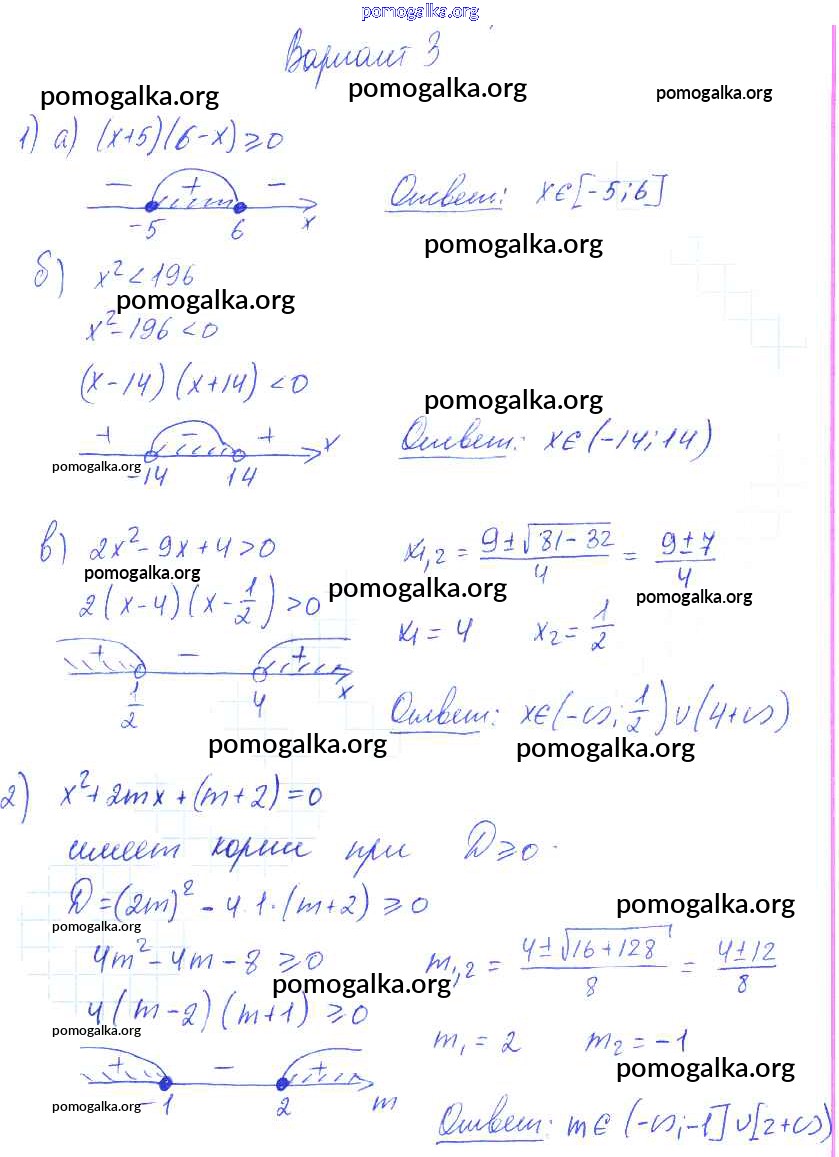 pomogalka.org
Вариант 3
pomogalka.org pomogalka.org pomogalka.org
1) а) (x+5)(6-x)≥0
- + -
-5 6 x
Ответ: x∈[-5;6]
pomogalka.org
б) x²<196
pomogalka.org
x²-196<0
(x-14)(x+14)<0
pomogalka.org
+ - + x
-14 14
Ответ: x∈(-14;14)
pomogalka.org
в) 2x²-9x+4>0
x₁,₂ = (9±√(81-32))/4 = (9±7)/4
pomogalka.org pomogalka.org pomogalka.org
2(x-4)(x-1/2)>0
x₁=4 x₂=1/2
+ - +
1/2 4 x
Ответ: x∈(-∞;1/2)∪(4+∞)
pomogalka.org pomogalka.org
2) x²+2mx+(m+2)=0
имеет корни при D≥0.
D=(2m)²-4·1·(m+2)≥0
pomogalka.org
pomogalka.org
4m²-4m-8≥0
m₁,₂ = (4±√(16+128))/8 = (4±12)/8
pomogalka.org
4(m-2)(m+1)≥0
pomogalka.org
m₁=2 m₂=-1
pomogalka.org
+ - +
-1 2 m
pomogalka.org
Ответ: m∈(-∞;-1]∪[2+∞)